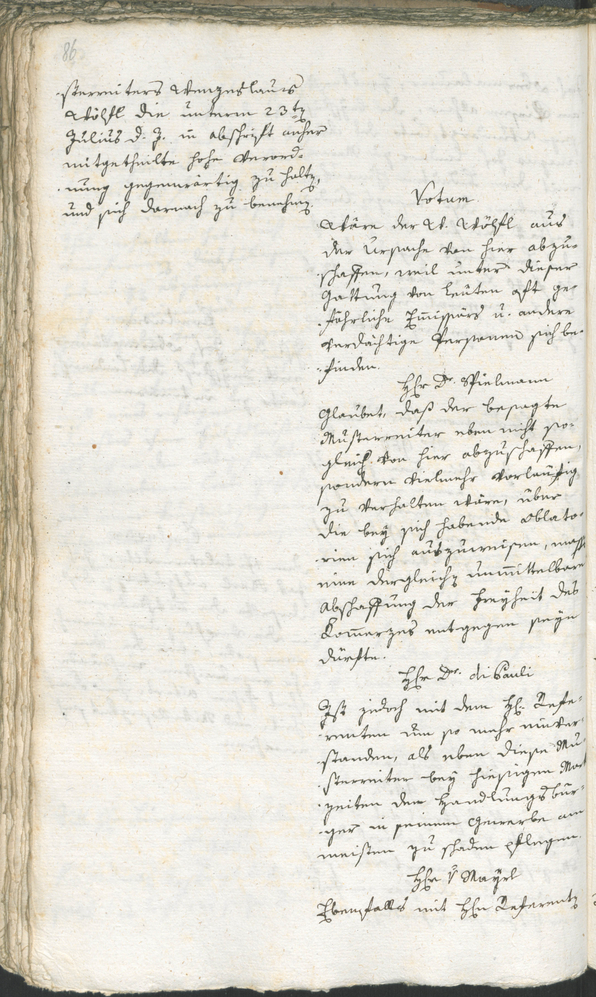 86
sterreiters Wenzeslaus
Wölfl die unterm 23tn
Julius d. J. in Abschrift anher
mitgetheilte hohe Verord-
nung gegenwärtig zu haltn,
und sich darnach zu benehmn.
Votum
Wäre der W. Wölfl aus
der Ursache von hier abzu-
schaffen, weil unter dieser
Gattung von Leuten oft ge-
fährliche Emissärs u. andere
verdächtige Personen sich be-
finden.
Hr Dr. Spielmann
Glaubet, daß der besagte
Musterreiter eben nicht so-
gleich von hier abzuschaffen,
sondern vielmehr vorläufig
zu verhalten wäre, über
die bey sich habende Oblato-
rien sich auszuweisen, mass
eine dergleichn unmittelbare
Abschaffung der Freyheit des
Komerzes entgegen seyn
dürfte.
Hr Dr. di Pauli
Ist jedoch mit dem H. Refe-
renten um so mehr einver-
standen, als eben diese Mu-
sterreiter bey hiesigen Mark
zeiten den Handlungsbür-
ger in seinem Gewerbe am
meisten zu schaden pflegen.
Hr v Mayrl
Ebenfalls mit Hn Referentn